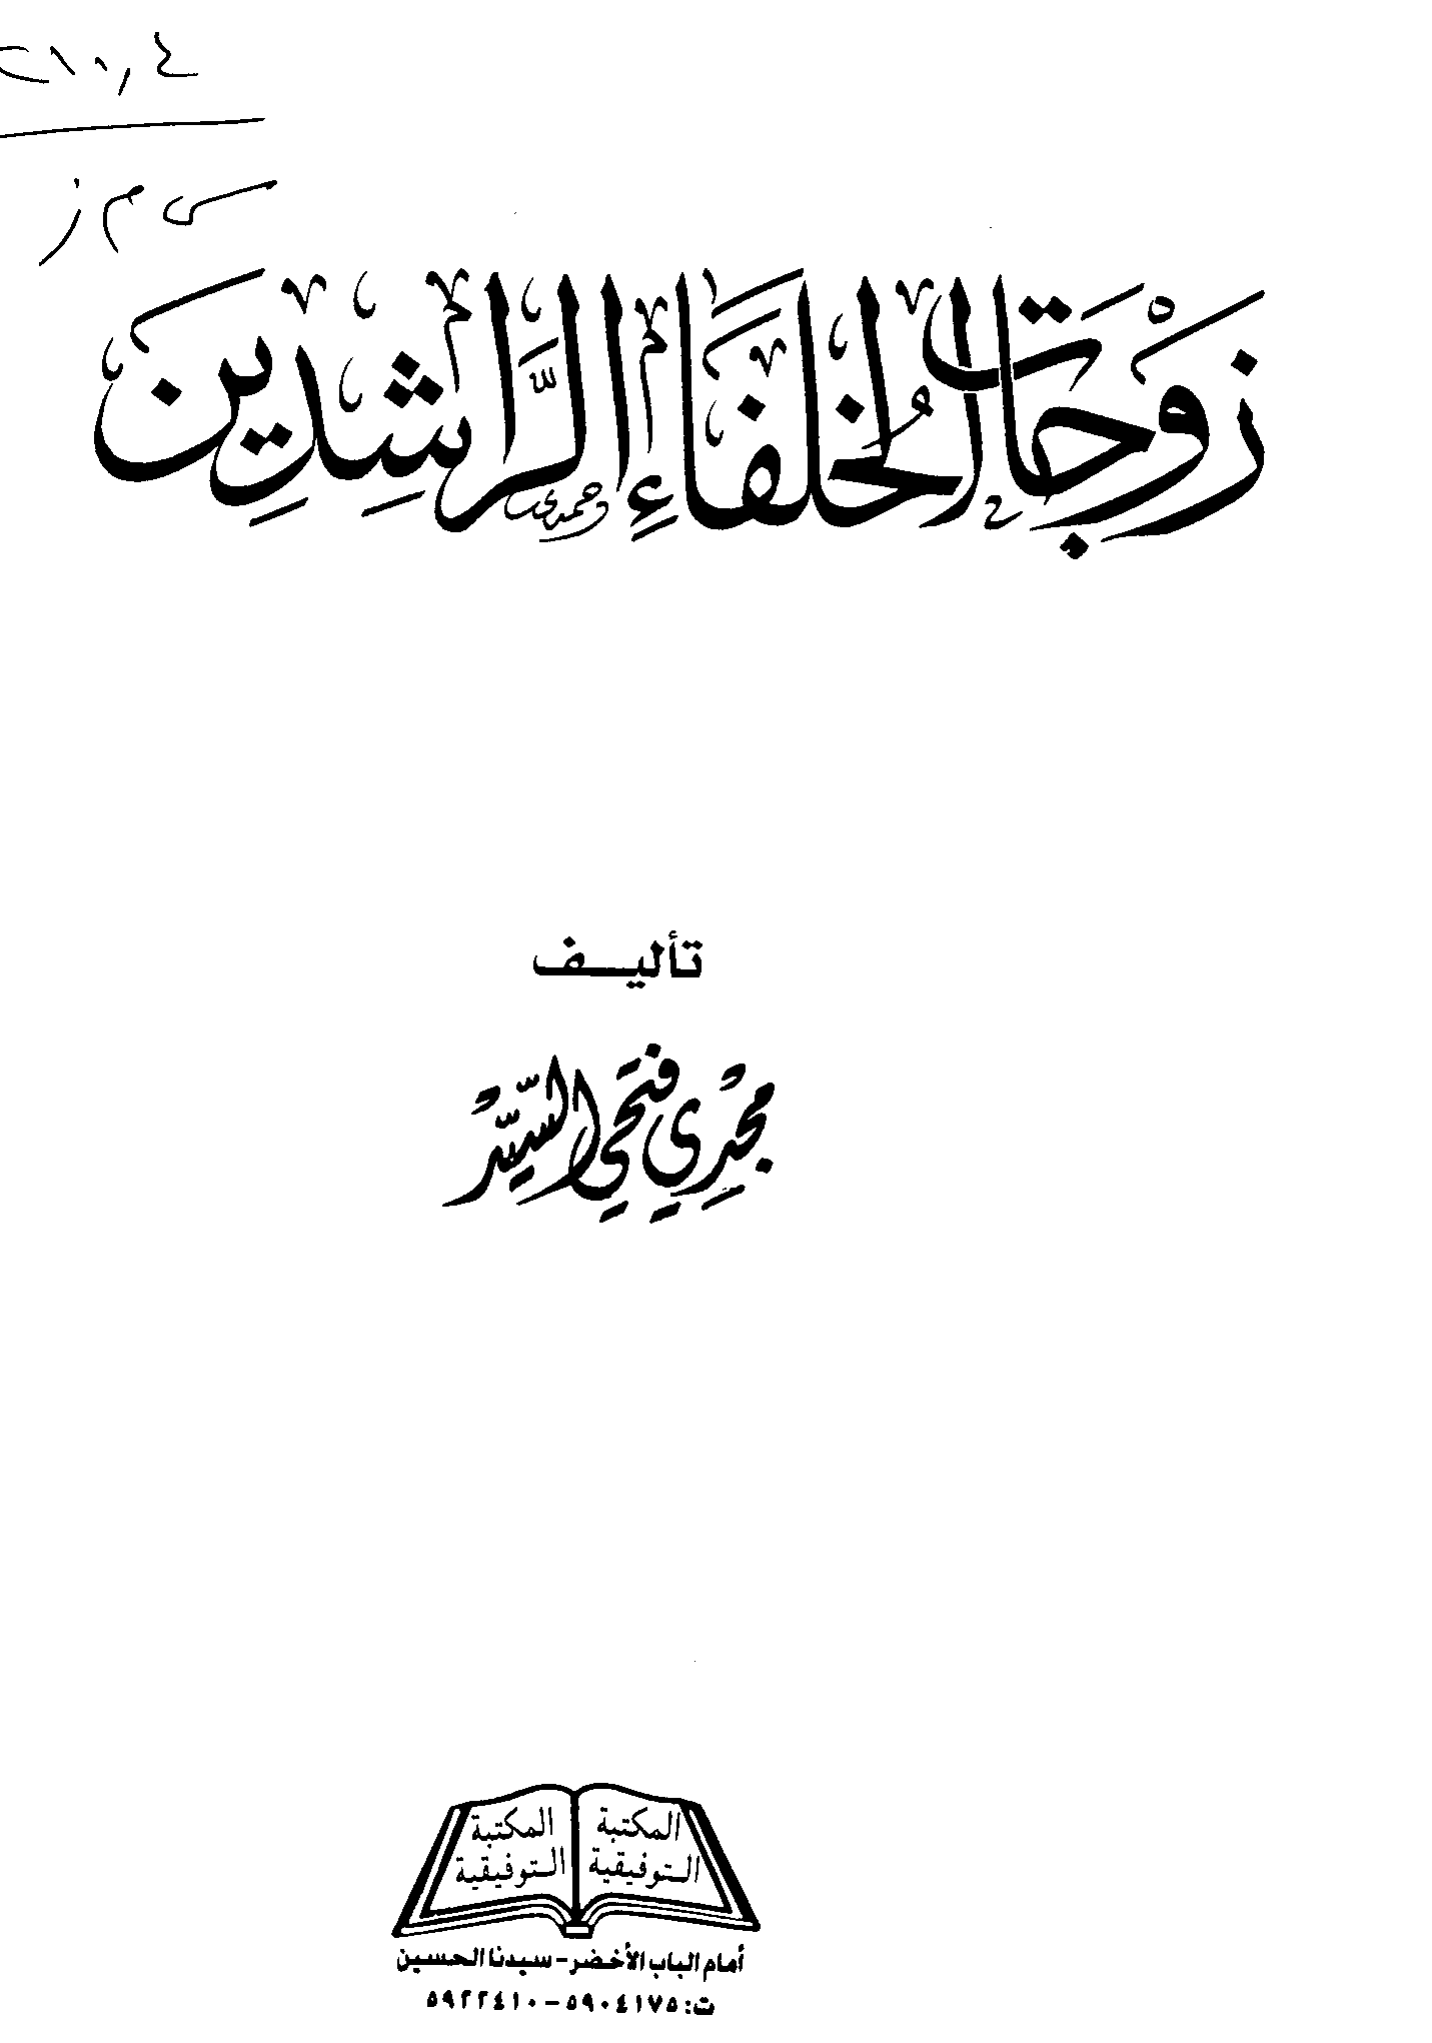 س م ز
زَوْجَاتُ الخُلَفَاءِ الرَّاشِدِين
تأليف
مجْدِي فتحي السَّيّد
المكتبة التوفيقية
المكتبة التوفيقية
أمام الباب الأخضر - سيدنا الحسين
ت: ٥٩٠٤١٧٥ - ٥٩٢٢٤١٠